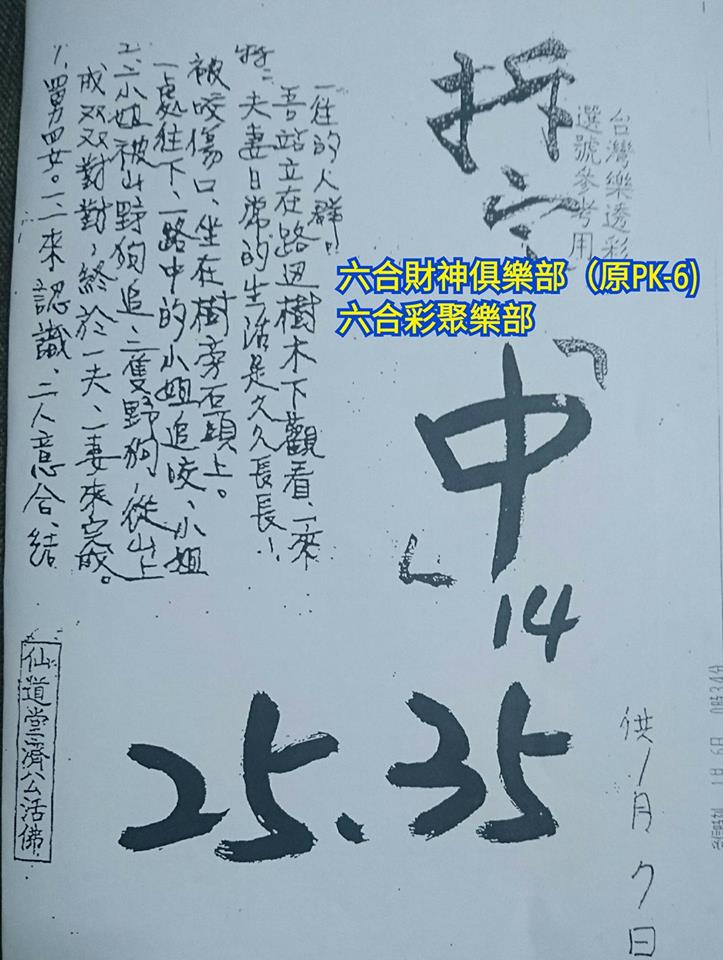 1、四男四女。一一來認識、二人意合、結
成双双對對,終於一夫、一妻來完成。
2、二小姐被山野狗追、三隻野狗,從山上
一處往下、一路中的小姐追咬、小姐
被咬傷口、坐在樹旁石頭上。
特:夫妻日常的生活是久久長長!
吾站立在路边樹木下觀看、一來
一往的人群!
仙道堂濟公活佛
拆字
台灣樂透彩
選號參考用
六合財神俱樂部（原PK-6)
六合彩聚樂部
「中」
14
25、35
供1月7日